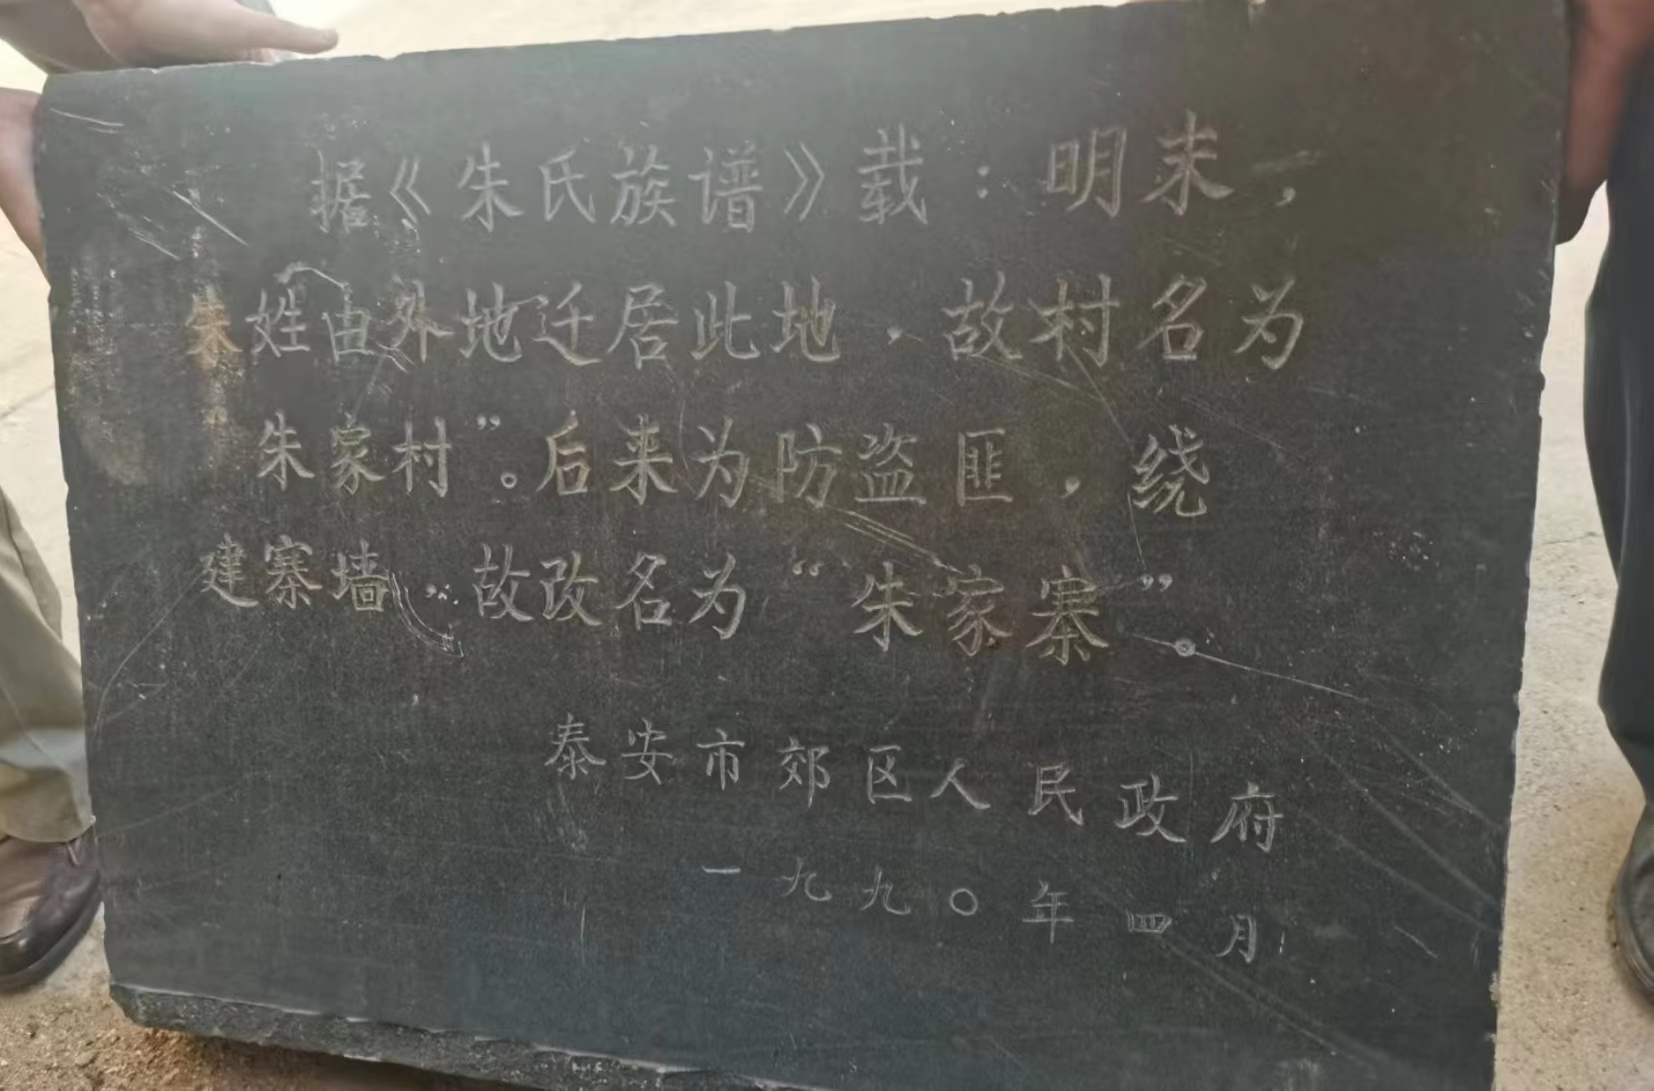 据《朱氏族谱》载：明末，
朱姓由外地迁居此地，故村名为
朱家村”。后来为防盗匪，绕
建寨墙，故改名为“朱家寨”。
泰安市郊区人民政府
一九九〇年四月